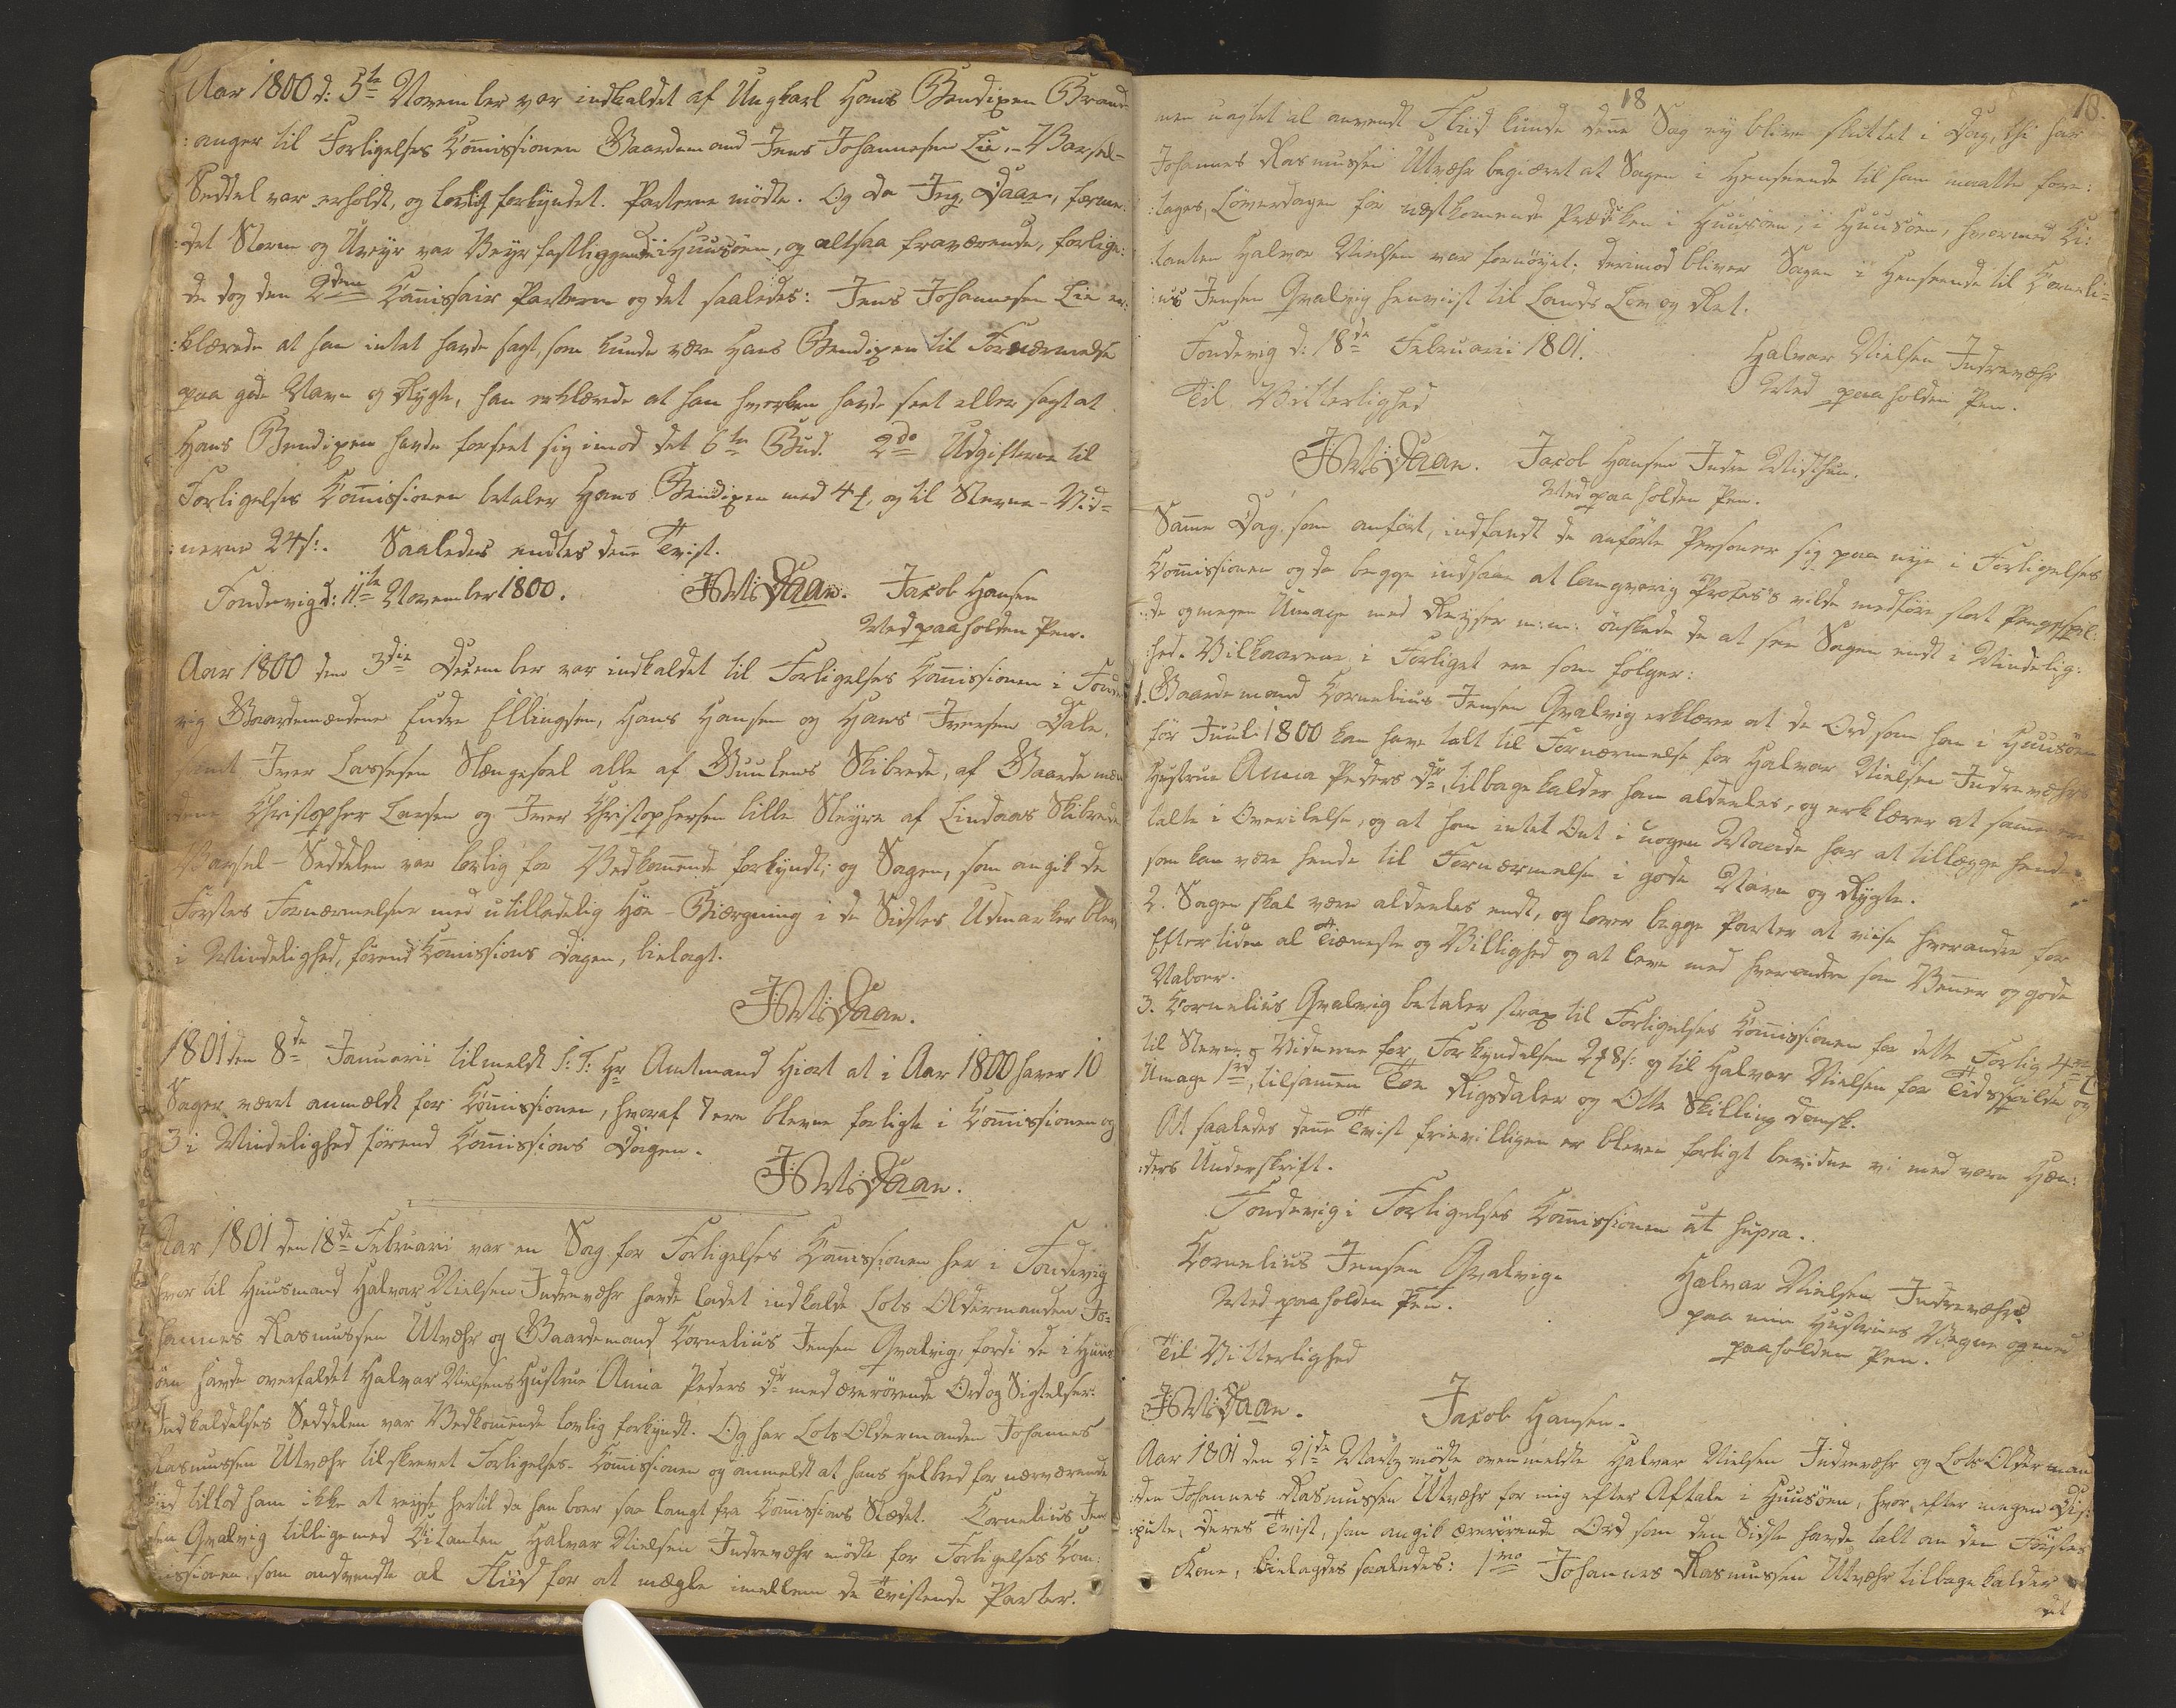 Aar 1800 d: 5te November var indkaldet af Ungkarl Hans Bendixen Brand-
:anger til Forligelses Commissionen Gaardemand Jens Johannesen Lie.- Varsel-
Seddel var erholdt, og lovlig forkyndet. Parterne mødte. Og da Jeg, Daae, forme-
:det Storm og Uveyr var Veyrfastliggende i Huusøen, og altsaa fraværende, forlige:
de dog den 2den Commissair Parterne og det saaledes: Jens Johannesen Lie er:
:klærede at han intet havde sagt, som kunde være Hans Bendixen til Fornærmelse
paa gode Navn og Rygte, han erklærede at han hverken havde seet eller sagt at
Hans Bendixen havde forseet sig imod det 6te Bud. 2do Udgifterne til
Forligelses Commissionen betaler Hans Bendixen med 4 ƒ, og til Stevne-Vid=
:nerne 24 s:. Saaledes endtes denne Tvist.
Tondevig d: 11te November 1800. JMsDaae. Jacob Hansen
Med paaholden Pen.
Aar 1800 den 3die December var indkaldet til Forligelses Commissionen i Tonde
vig Gaardemændene Endre Ellingsen, Hans Hansen og Hans Iversen Dale,
samt Iver Lassesen Stængesoel alle af Guulens Skibrede, af Gaardemæn
dene Christopher Larsen og Iver Christophersen lille Steyre af Lindaas Skibrede
Varsel-Seddelen var lovlig for Vedkommende forkyndt; og Sagen, som angik de
Førstes Fornærmelser med utilladelig Høe-Biærgning i de Sidstes Udmarker blev
i Mindelighed, førend Commissions Dagen, bielagt.
JMsDaae.
1801 den 8de Januarii tilmeldt S: T: Hr Amtmand Hiort at i Aar 1800 haver 10
Sager været anmældt for Commissionen, hvoraf 7 ere blevne forligte i Commissionen og
3 i Mindelighed førend Commissions Dagen.
JMsDaae.
Aar 1801 den 18de Februari var en Sag for Forligelses Commissionen her i Tondevig
hvor til Huusmand Halvar Nielsen Indrevæhr havde ladet indkalde Lots Oldermanden Jo=
hannes Rasmussen Utvæhr og Gaardemand Cornelius Jensen Qvalvig, fordi de i Huus-
øen havde overfaldet Halvar Nielsens Hustrue Anna Peders dr med ærerørende Ord og Sigtelser.
Indkaldelses Seddelen var Vedkommende lovlig forkyndt. Og har Lots Oldermanden Johannes
Rasmussen Utvæhr tilskrevet Forligelses-Commissionen og anmeldt at hans Helbred for nærværende
Tiid tillod ham ikke at reyse hertil da han boer saa langt fra Commissions Stædet. Cornelius Jen
sen Qvalvig tilligemed Citanten Halvar Nielsen Indrevæhr mødte for Forligelses Com:
issionen, som anvendte al Fliid for at mægle imellem de Tvistende Parter.
18
18.
men uagtet al anvendt Fliid kunde denne Sag ey blive sluttet i Dag, thi har
Johannes Rasmussen Utvæhr begiæret at Sagen i Henseende til ham maatte fore:
:tages, Løverdagen før næstkomende Prædiken i Huusøen, i Huusøen, hvormed Ci:
:tanten Halvar Nielsen var fornøyet; derimod bliver Sagen i Henseende til Corneli=
:us Jensen Qvalvig henviist til Lands Lov og Ret.
Tondevig d: 18de Februarii 1801.
Halvar Nielsen Indrevæhr
Med paaholden Pen.
Til Vitterlighed
JMsDaae. Jacob Hansen Indre Midthun.
Med paaholden Pen.
Samme Dag, som anført, indfandt de anførte Personer sig paa nye i Forligelses
Commissionen og da begge indsaae at langvarig Process vilde medføre stort Pengespil:
:de og megen Umage med Reyser m: m: ønskede de at see Sagen endt i Mindelig:
:hed. Vilkaarene i Forliget ere som følger:
1. Gaardemand Cornelius Jensen Qvalvig erklærer at de Ord som han i Huusøen
før Juul 1800 kan have talt til Fornærmelse for Halvar Nielsen Indrevæhrs
Hustrue Anna Peders dr, tilbagekalder han aldeeles, og erklærer at samme ere
talte i Overilelse, og at han intet Ont i nogen Maade har at tillægge hende
som kan være hende til Fornærmelse i gode Navn og Rygte.
2. Sagen skal være aldeeles endt, og lover begge Parter at viise hverandre for
Eftertiden al Tieneste og Villighed og at leve med hverandre som Venner og gode
Naboer.
3. Cornelius Qvalvig betaler strax til Forligelses Commissionen for dette Forlig 4
til Stevne-Vidnerne for Forkyndelsen 2 ƒ 8 s: og til Halvar Nielsen for Tidsspilde og
Umage 1 rd, tilsammen Toe Rigsdaler og Otte Skilling dansk.
At saaledes denne Tvist frievilligen er bleven forligt bevidne vi med vore Hæn:
:ders Underskrift.
Tondevig i Forligelses Commissionen ut supra.
Cornelius Jensen Qvalvig
Med paaholden Pen.
Halvar Nielsen Indrevæhr
paa min Hustrues Vegne og med
paaholden Pen.
Til Vitterlighed
JMsDaae. Jacob Hansen.
Aar 1801 den 21de Martz mødte ovenmeldte Halvar Nielsen Indrevæhr og Lots Olderman
:den Johannes Rasmussen Utvæhr for mig efter Aftale i Huusøen, hvor, efter megen Dis:
:pute, deres Tvist, som angik ærerørende Ord som den Sidste havde talt om den Førstes
Kone, bielagdes saaledes: 1mo Johannes Rasmussen Utvæhr tilbagekalder
alt